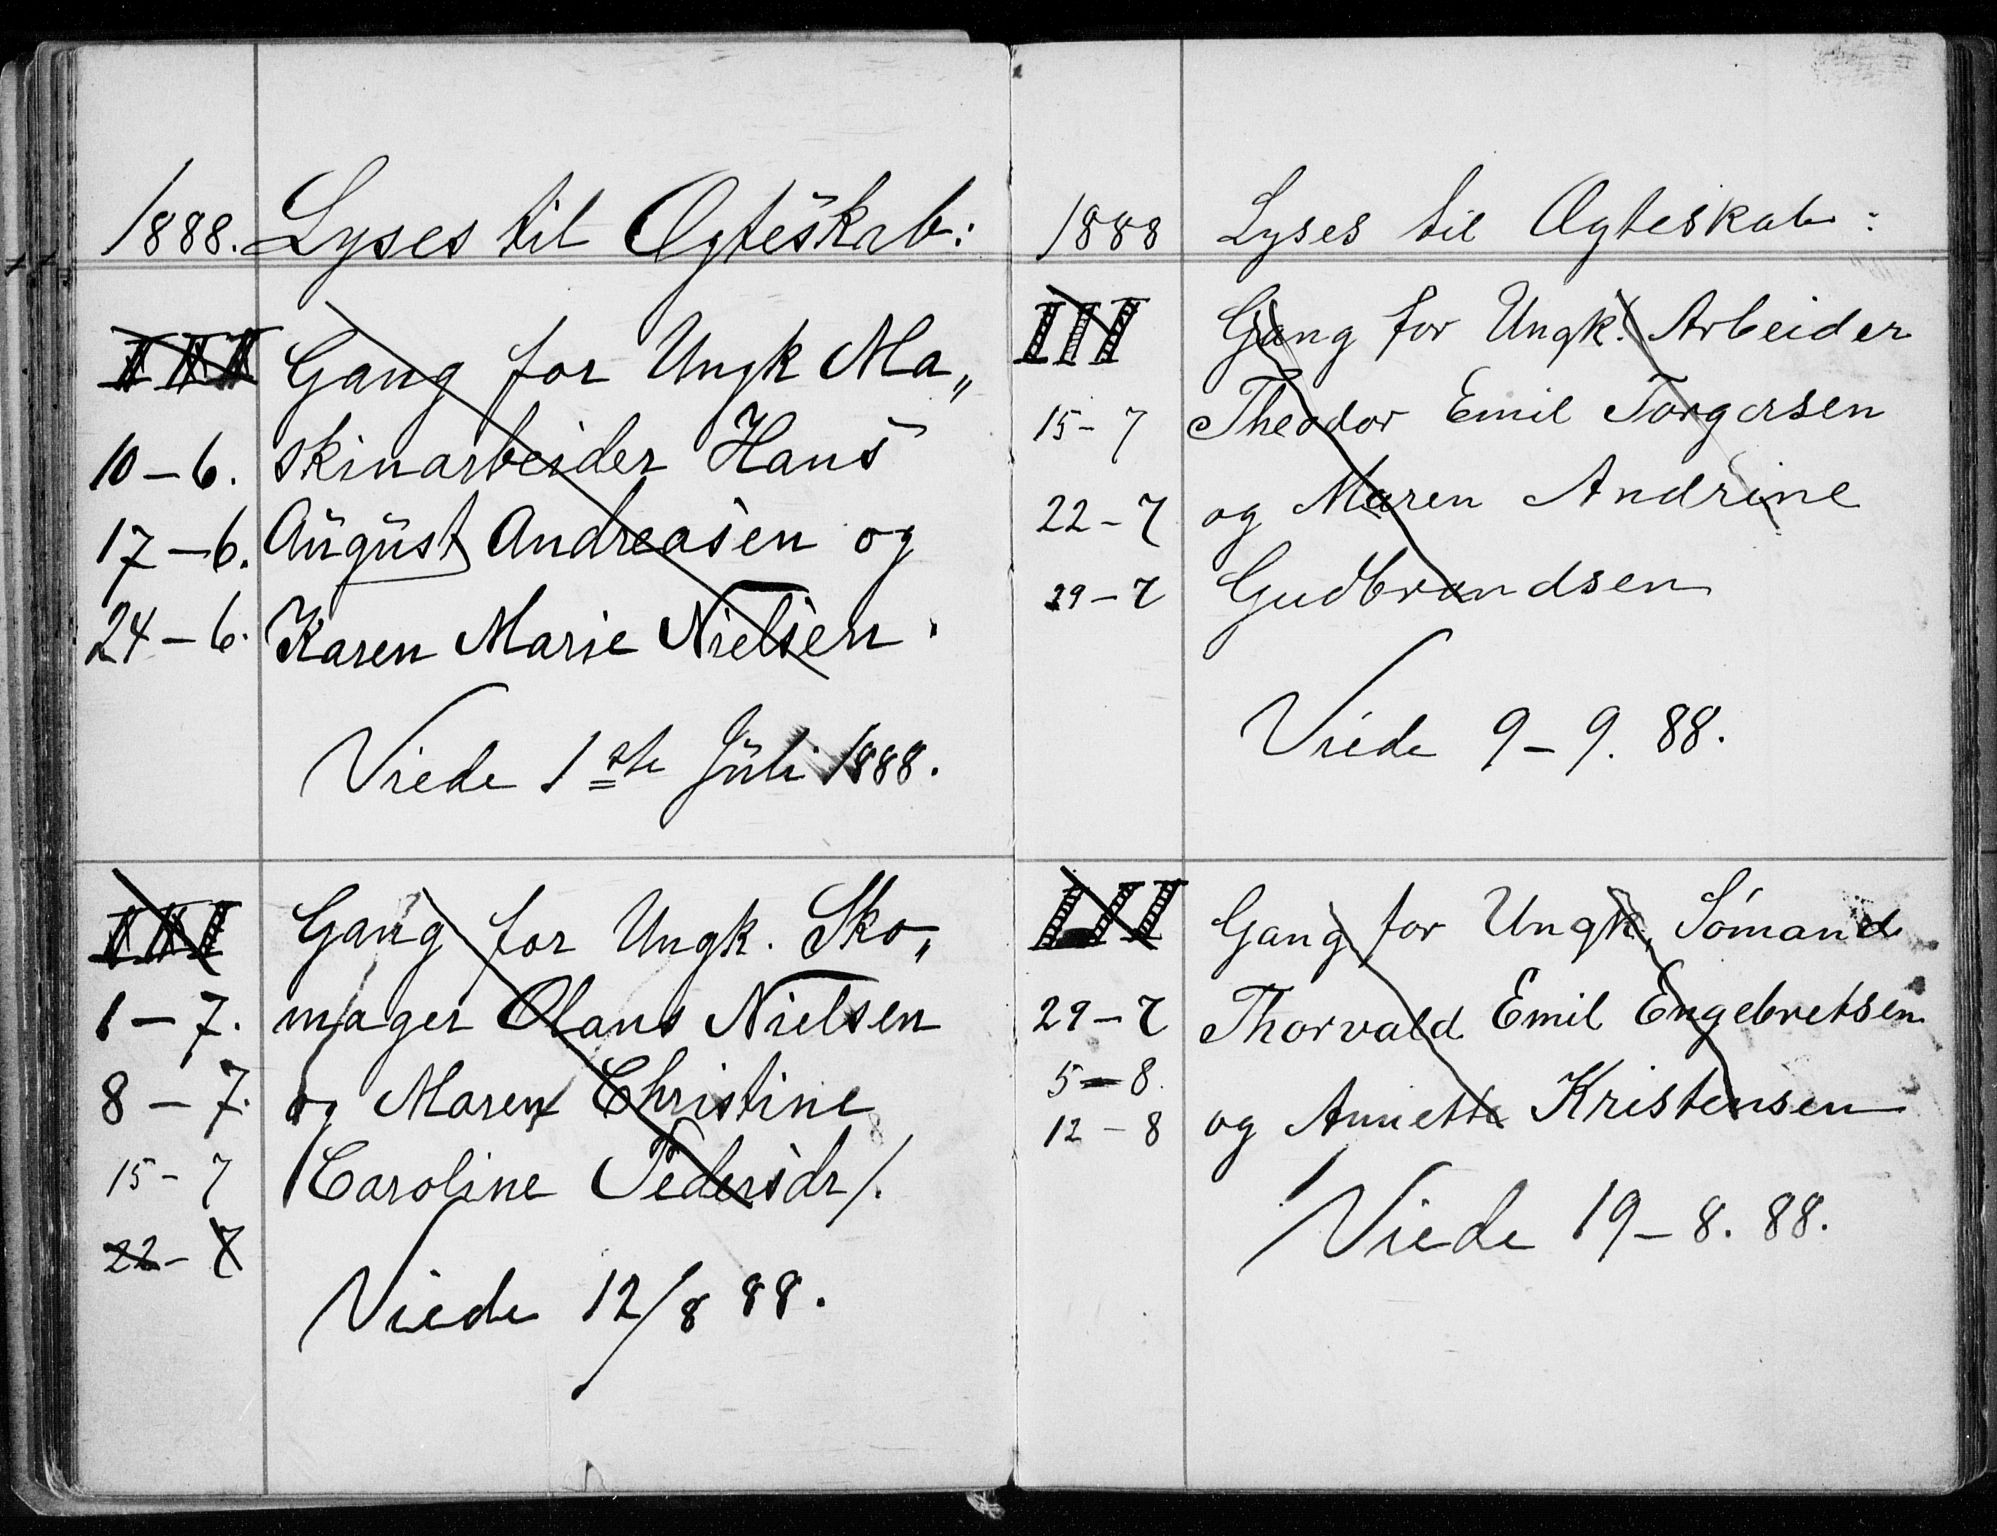 1888. Lyses til Ægteskab:
III Gang for Ungk Ma„
10 – 6. skinarbeider Hans
17 – 6. August Andreasen og
24 – 6. Karen Marie Nielsen.
Viede 1ste Juli 1888.
III Gang for Ungk. Sko„
1 – 7. mager Olaus Nielsen
8 – 7. og Maren Christine
15 – 7 Caroline Pedersdr/.
22 – 7
Viede 12/8 88.
1888 Lyses til Ægteskab:
III Gang for Ungk. Arbeider
15 – 7 Theodor Emil Torgersen
22 – 7 og Maren Andrine
29 – 7 Gudbrandsen
Viede 9 – 9. 88.
III Gang for Ungk. Sömand
29 – 7 Thorvald Emil Engebretsen
5 – 8.
12 – 8 og Annette Kristensen
Viede 19 – 8. 88.